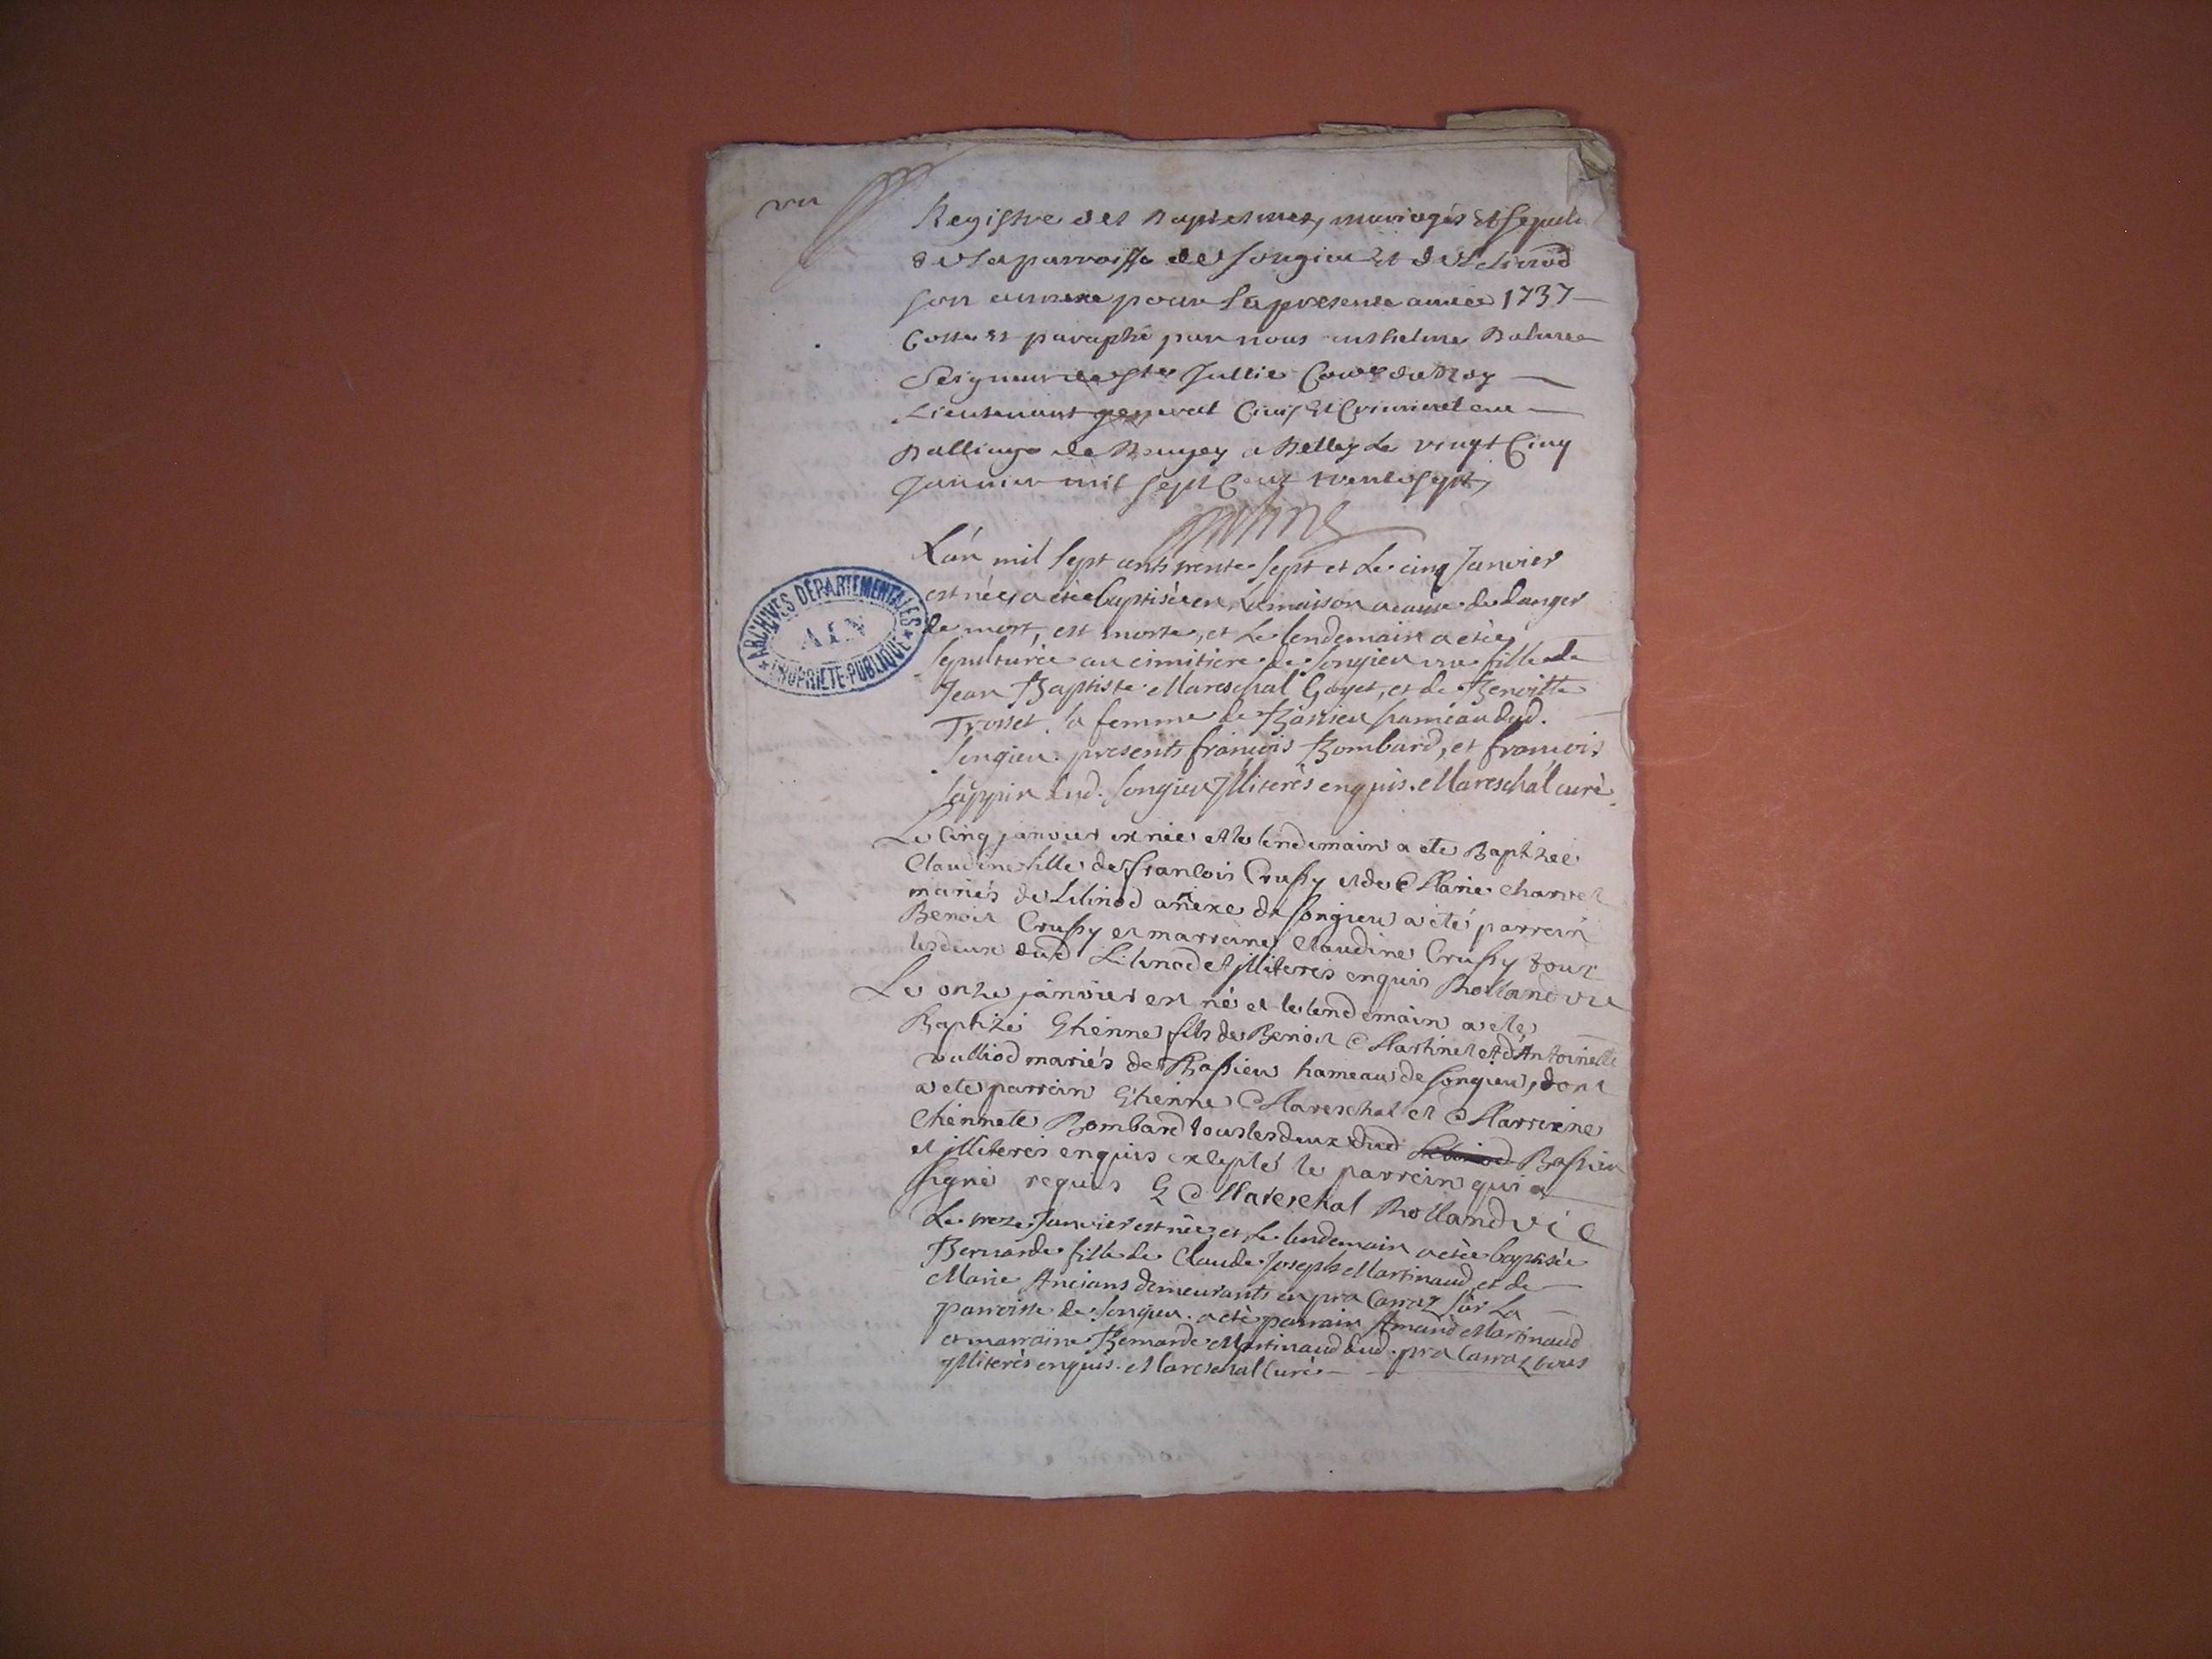 vu
Registre des Baptesmes, mariages et sepult
de la parroisse de songieu et de Lilinod
son annexe pour la presente année 1737
Cotté et paraphé par nous anthelme Balme
Seigneur de Ste Jullie Conser du Roy
Lieutenant general Civil et Criminel au
Balliage de Bugey a Belley Le vingt Cinq
Janvier mil sept Cent trente sept,
L'an mil sept cents trente sept et le cinq Janvier
est née, a étée baptisée en la maison a cause du danger
de mort, est morte, et le lendemain a étée
sepulturée au cimitiere de Songieu une fille de
Jean Baptiste Mareschal Goyet, et de Benoitte
Trosset sa femme de Bassieu hameau dud.
Songieu presents françois Bombard, et françois
Sappin dud. Songieu Illiterés enquis. Mareschal curé.
Le Cinq janvier est née et le lendemain a ete Baptizée
Claudine fille de françois Crussy et de Marie charvet
mariés de Lilinod anexe de songieu a été parrein
Benoit Crussy et marreine Claudine Crussy tous
les deux dud Lilinod et illiterés enquis Rolland vic
Le onze janvier est né et le lendemain a ete
Baptizé Ethienne fils de Benoit Martinet et d'Antoinette
vulliod mariés de Bassieu hameau de songieu, dont
a ete parrein Ethienne Mareschal et Marreine
Ethiennete Bombard tous les deux dud Lilinod Bassieu
et illiterés enquis excepté le parrein qui a
signé requis E Mareschal Rolland vic
Le treze Janvier est née, et le lendemain a étée baptisée
Bernarde fille de Claude Joseph Martinaud, et de
Marie Ancians demeurants en pra Carraz sur La
parroisse de Songieu. a été parrain Amand Martinaud
et marraine Bernarde Martinaud dud. pra Carraz tous
Illiterés enquis. Mareschal Curé
ARCHIVES DÉPARTEMENTALES
AIN
PROPRIETE PUBLIQUE